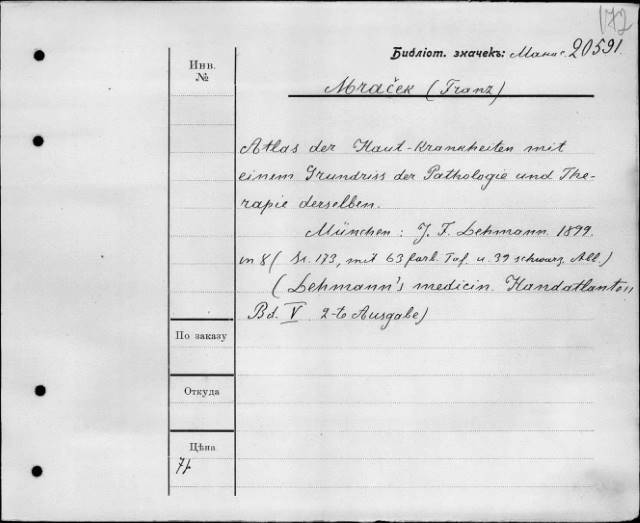 172
Библіот. значекъ: Макас. 20591.
Инв.
№
Mraček (Franz)
Atlas der Haut-Krankheiten mit
einem Grundriss der Pathologie und The-
rapie derselben.
München: J. F. Lehmann. 1899.
in 8 ( Sr. 173, mit 63 farb. Taf. u. 39 schwarz. Abb.)
(Lehmann's medicin. Handatlanten
Bd. V. 2-te Ausgabe)
По заказу
Откуда
Цѣна